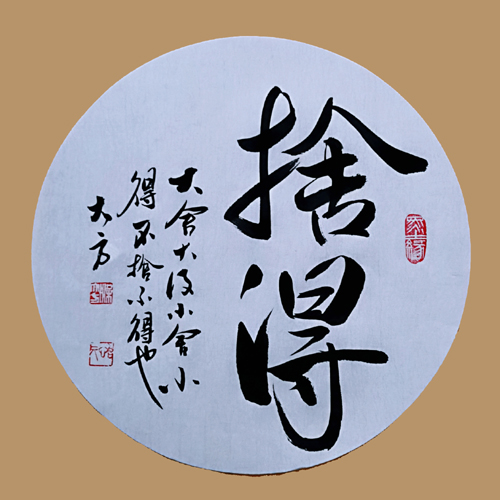 捨得
大舍大得小舍小
得不捨不得也
大方